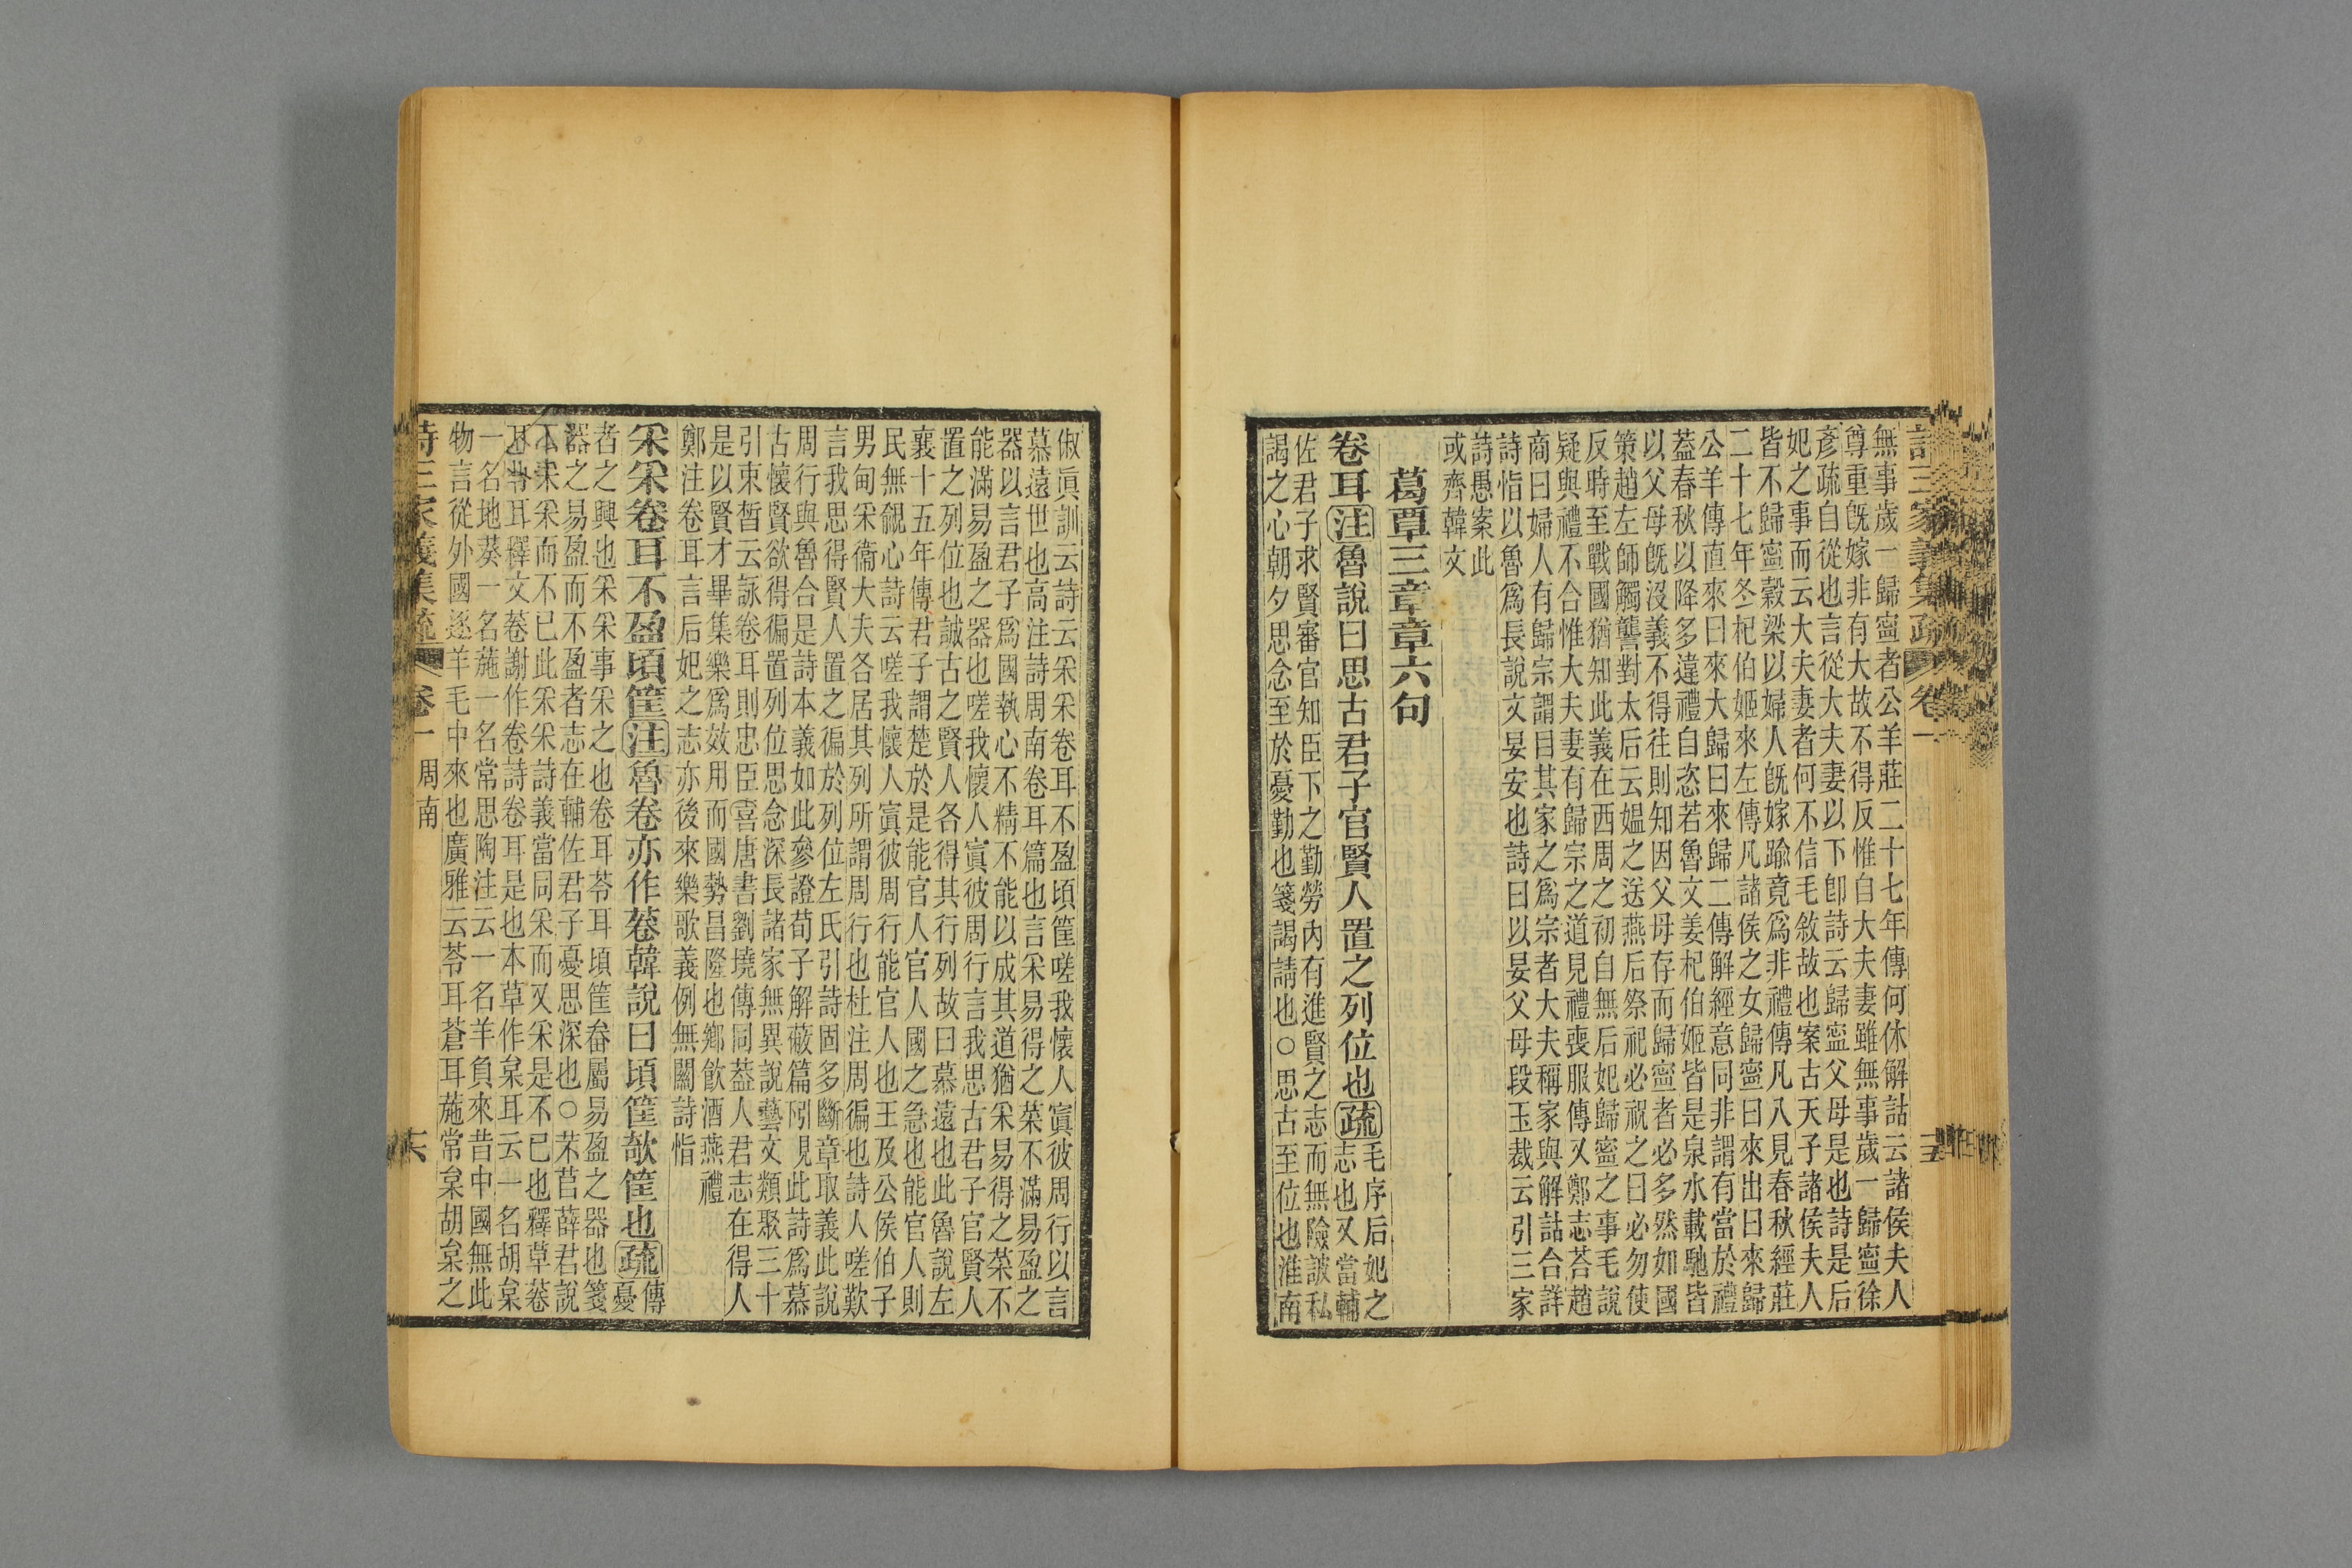 詩三家義集疏 卷一
無事歲一歸寧者公羊莊二十七年傳何休解詁云諸侯夫人
尊重旣嫁非有大故不得反惟自大夫妻雖無事歲一歸寧徐
彥疏自從也言從大夫妻以下卽詩云歸寧父母是也詩是后
妃之事而云大夫妻者何不信毛敘故也案古天子諸侯夫人
皆不歸寧穀梁以婦人旣嫁踰竟爲非禮傳凡八見春秋經莊
二十七年冬杞伯姬來左傳凡諸侯之女歸寧曰來出曰來歸
公羊傳直來曰來大歸曰來歸二傳解經意同非謂有當於禮
蓋春秋以降多違禮自恣若魯文姜杞伯姬皆是泉水載馳皆
以父母旣沒義不得往則知因父母存而歸寧者必多然如國
策趙左師觸讋對太后云媼之送燕后祭祀必祝之曰必勿使
反時至戰國猶知此義在西周之初自無后妃歸寧之事毛說
疑與禮不合惟大夫妻有歸宗之道見禮喪服傳又鄭志荅趙
商曰婦人有歸宗謂自其家之爲宗者大夫稱家與解詁合詳
詩恉以魯爲長說文晏安也詩曰以晏父母段玉裁云引三家
詩愚案此
或齊韓文
葛覃三章章六句
卷耳注魯說曰思古君子官賢人置之列位也疏毛序后妃之
志也又當輔
佐君子求賢審官知臣下之勤勞內有進賢之志而無險詖私
謁之心朝夕思念至於憂勤也箋謁請也○思古至位也淮南
俶眞訓云詩云采采卷耳不盈頃筐嗟我懷人寘彼周行以言
慕遠世也高注詩周南卷耳篇也言采易得之菜不滿易盈之
器以言君子爲國執心不精不能以成其道猶采易得之菜不
能滿易盈之器也嗟我懷人寘彼周行言我思古君子官賢人
置之列位也誠古之賢人各得其行列故曰慕遠也此魯說左
襄十五年傳君子謂楚於是能官人官人國之急也能官人則
民無覦心詩云嗟我懷人寘彼周行能官人也王及公侯伯子
男甸采衞大夫各居其列所謂周行也杜注周徧也詩人嗟歎
言我思得賢人置之徧於列位左氏引詩固多斷章取義此說
周行與魯合是詩本義如此參證荀子解蔽篇所見此詩爲慕
古懷賢欲得徧置列位思念深長諸家無異說藝文類聚三十
引束皙云詠卷耳則忠臣喜唐書劉墝傳同葢人君志在得人
是以賢才畢集樂爲效用而國勢昌隆也鄉飲酒燕禮
鄭注卷耳言后妃之志亦後來樂歌義例無關詩恉
采采卷耳不盈頃筐注魯卷亦作菤韓說曰頃筐欹筐也疏傳
憂
者之興也采采事采之也卷耳苓耳頃筐畚屬易盈之器也箋
器之易盈而不盈者志在輔佐君子憂思深也○芣苢薛君說
不采采而不已此采采詩義當同采而又采是不已也釋草菤
耳苓耳釋文菤謝作卷詩卷耳是也本草作枲耳云一名胡枲
一名地葵一名葹一名常思陶注云一名羊負來昔中國無此
物言從外國逐羊毛中來也廣雅云苓耳蒼耳葹常枲胡枲之
詩三家義集疏 卷一 周南